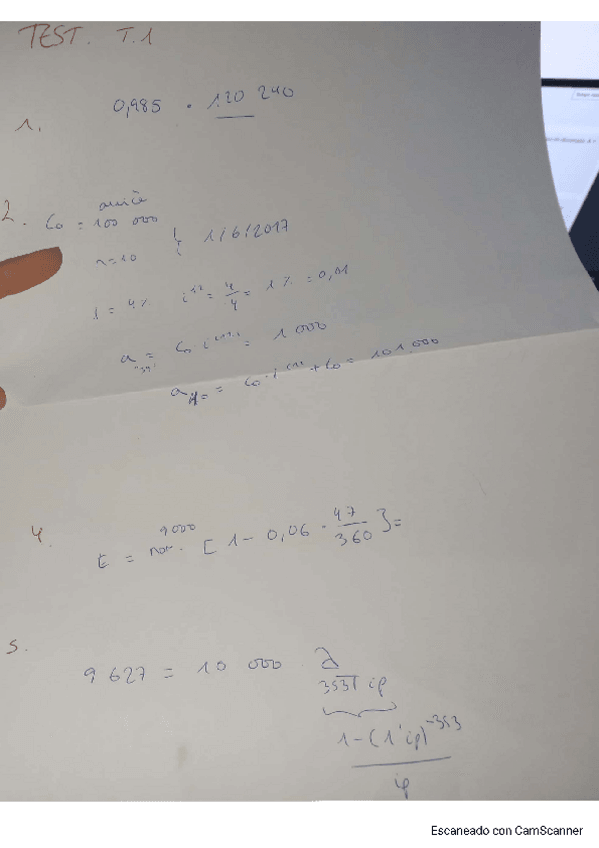 TEST. T.1
1.
0,985 · 120 240
2. C0 = 100 000
n=10
1/6/2017
i = 4% i = 4/4 = 1% = 0,01
= C0 i = 1 000
a = C0 · i + C0 = 101.000
4.
9000
E = nom. [1 - 0,06 · 47/360] =
5.
9 627 = 10 000
353 ip
1-(1'ip)^-353
ip
Escaneado con CamScanner